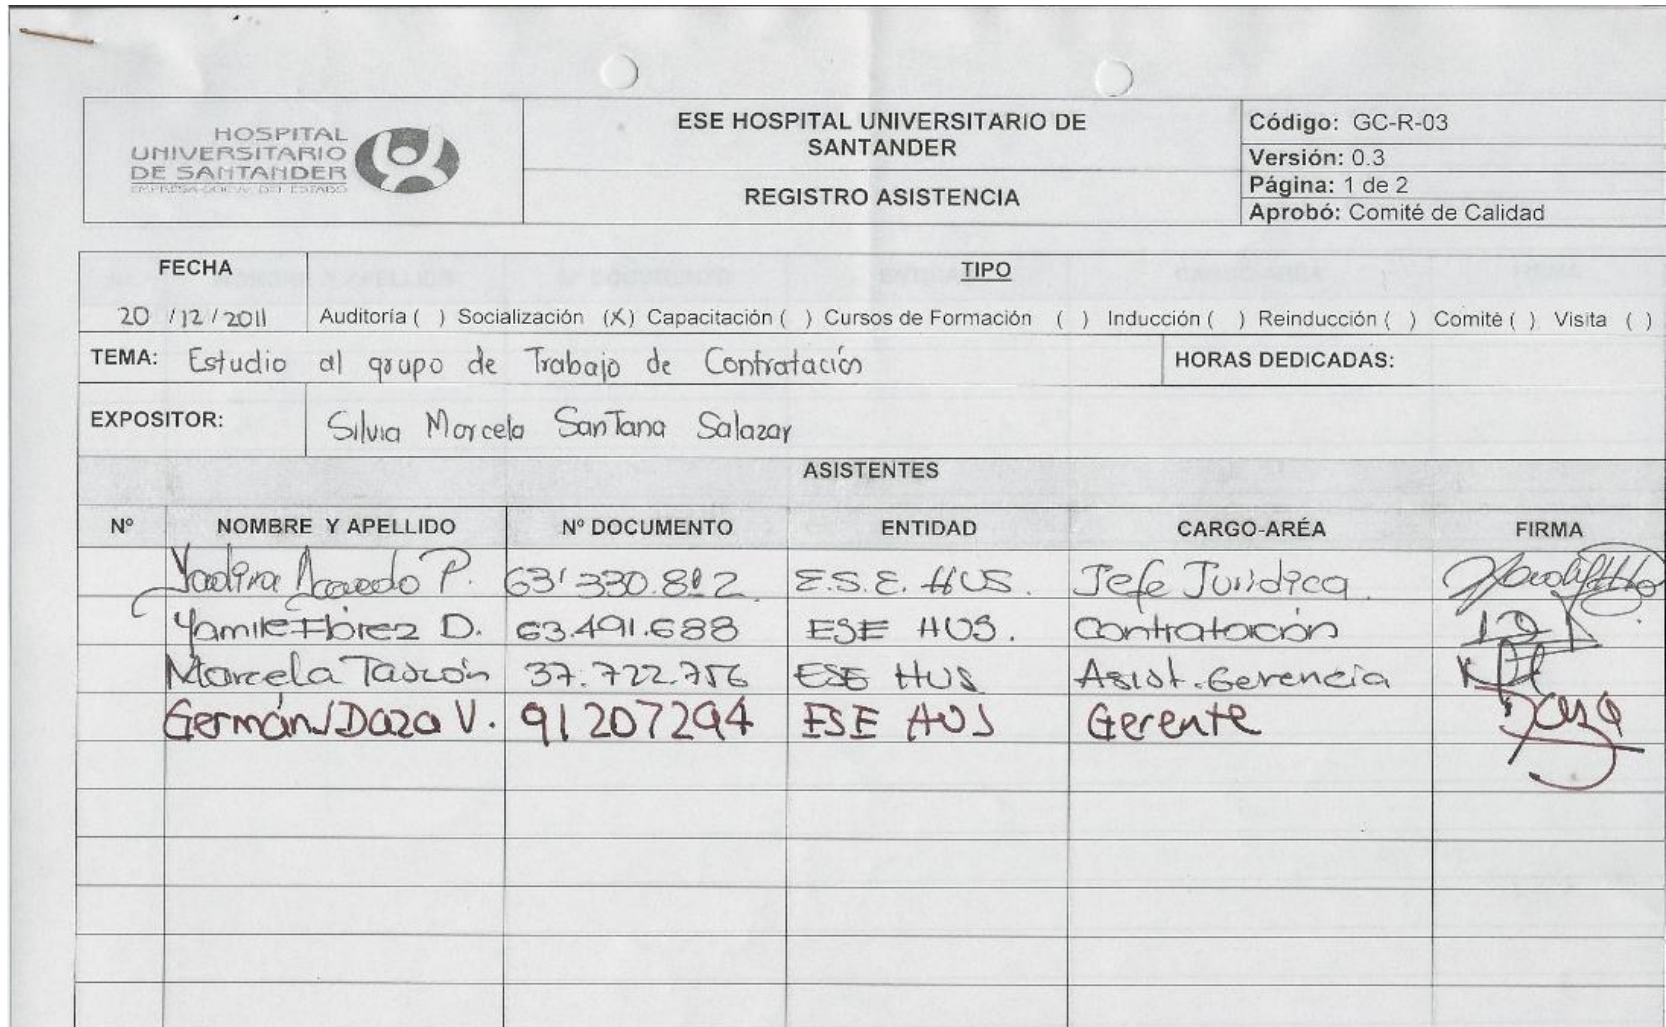 HOSPITAL
UNIVERSITARIO
DE SANTANDER
EMPRESA SOCIAL DEL ESTADO
ESE HOSPITAL UNIVERSITARIO DE
SANTANDER
REGISTRO ASISTENCIA
Código: GC-R-03
Versión: 0.3
Página: 1 de 2
Aprobó: Comité de Calidad
FECHA TIPO
20 /12 / 2011 Auditoría ( ) Socialización (X) Capacitación ( ) Cursos de Formación ( ) Inducción ( ) Reinducción ( ) Comité ( ) Visita ( )
TEMA: Estudio al grupo de Trabajo de Contratación HORAS DEDICADAS:
EXPOSITOR: Silvia Marcela SanTana Salazar
ASISTENTES
Nº NOMBRE Y APELLIDO Nº DOCUMENTO ENTIDAD CARGO-ARÉA FIRMA
P. E.S.E. HUS. Jefe Jurídica
Yamile Flórez D. 63.491.688 ESE HUS. Contratación
Marcela Tascón 37.722.756 ESE HUS Asist. Gerencia
Germán Daza V. 91207294 ESE HUS Gerente Daza